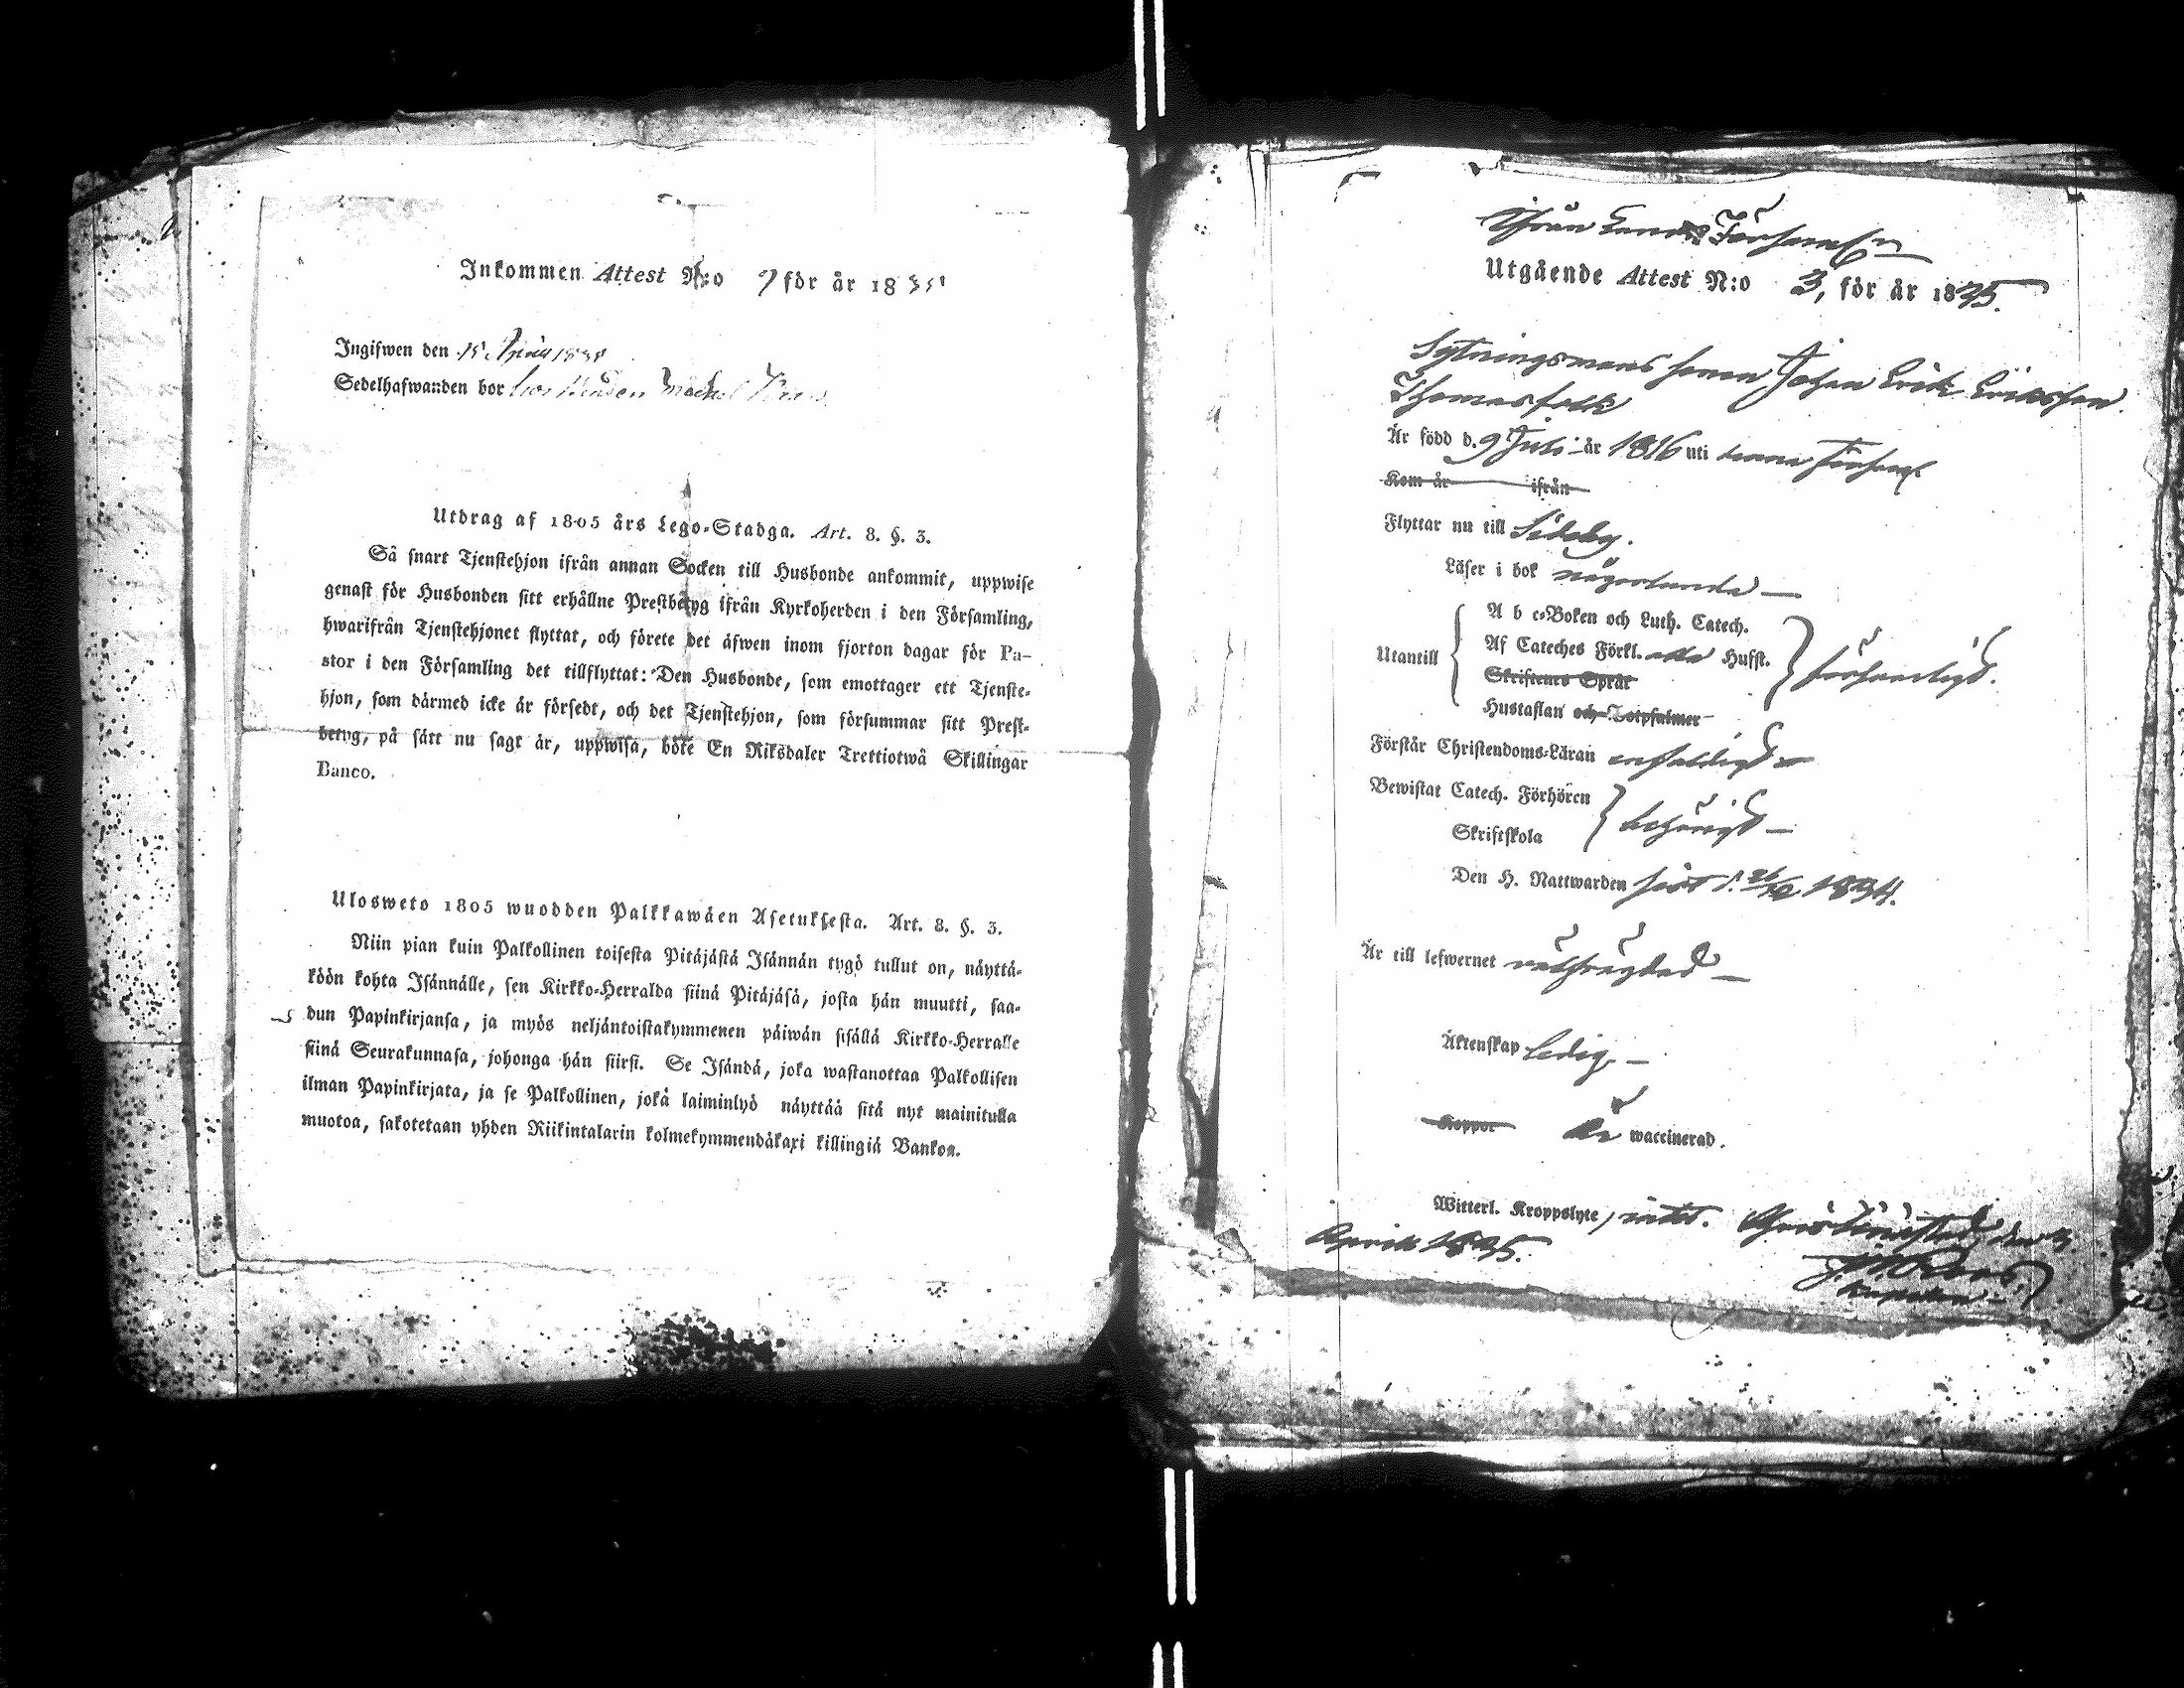 Inkommen Attest N:o 7 för år 1835
Ingifwen den 15 April 1835
Sedelhafwanden bor hos
Utdrag af 1805 års Lego-Stadga. Art. 8. §. 3.
Så snart Tjenstehjon ifrån annan Socken till Husbonde ankommit, uppwise
genast för Husbonden sitt erhållne Prestbetyg ifrån Kyrkoherden i den Församling,
hwarifrån Tjenstehjonet flyttat, och förete det äfwen inom fjorton dagar för Pa-
stor i den Församling det tillflyttat: Den Husbonde, som emottager ett Tjenste-
hjon, som därmed icke är försedt, och det Tjenstehjon, som försummar sitt Prest-
betyg, på sätt nu sagt är, uppwisa, böte En Riksdaler Trettiotwå Skillingar
Banco.
Ulosweto 1805 wuodden Palkkawäen Asetuksesta. Art. 8. §. 3.
Niin pian kuin Palkollinen toisesta Pitäjästä Isännän tygö tullut on, näyttä-
köön kohta Isännälle, sen Kirkko-Herralda siinä Pitäjäsä, josta hän muutti, saa-
dun Papinkirjansa, ja myös neljäntoistakymmenen päiwän sisällä Kirkko-Herralle
siinä Seurakunnasa, johonga hän siirsi. Se Isändä, joka wastanottaa Palkollisen
ilman Papinkirjata, ja se Palkollinen, joka laiminlyö näyttää sitä nyt mainitulla
muotoa, sakotetaan yhden Riikintalarin kolmekymmendäkaxi killingiä Bankoa.
Ifrån Församl
Utgående Attest N:o 3, för år 1835.
Sytningsmans sonen Johan Erik Eriksson
Thomasfolk
Är född d. 9 Juli år 1816 uti denna Församl
Kom år ifrån
Flyttar nu till Sideby.
Läser i bok någorlunda —
A b c-Boken och Luth. Catech.
Af Cateches Förkl. alla Hufst.
Utantill försvarligt.
Skriftenes Språk
Hustaflan och Botpsalmer
Förstår Christendoms-Läran enfaldigt —
Bewistat Catech. Förhören
behörigt —
Skriftskola
Den H. Nattwarden sist d. 26/12 1834.
Är till lefwernet välfrägdad —
Äktenskap ledig. —
Koppor Är waccinerad.
Witterl. Kroppslyte, intet. Christinestad, den
April 1835.